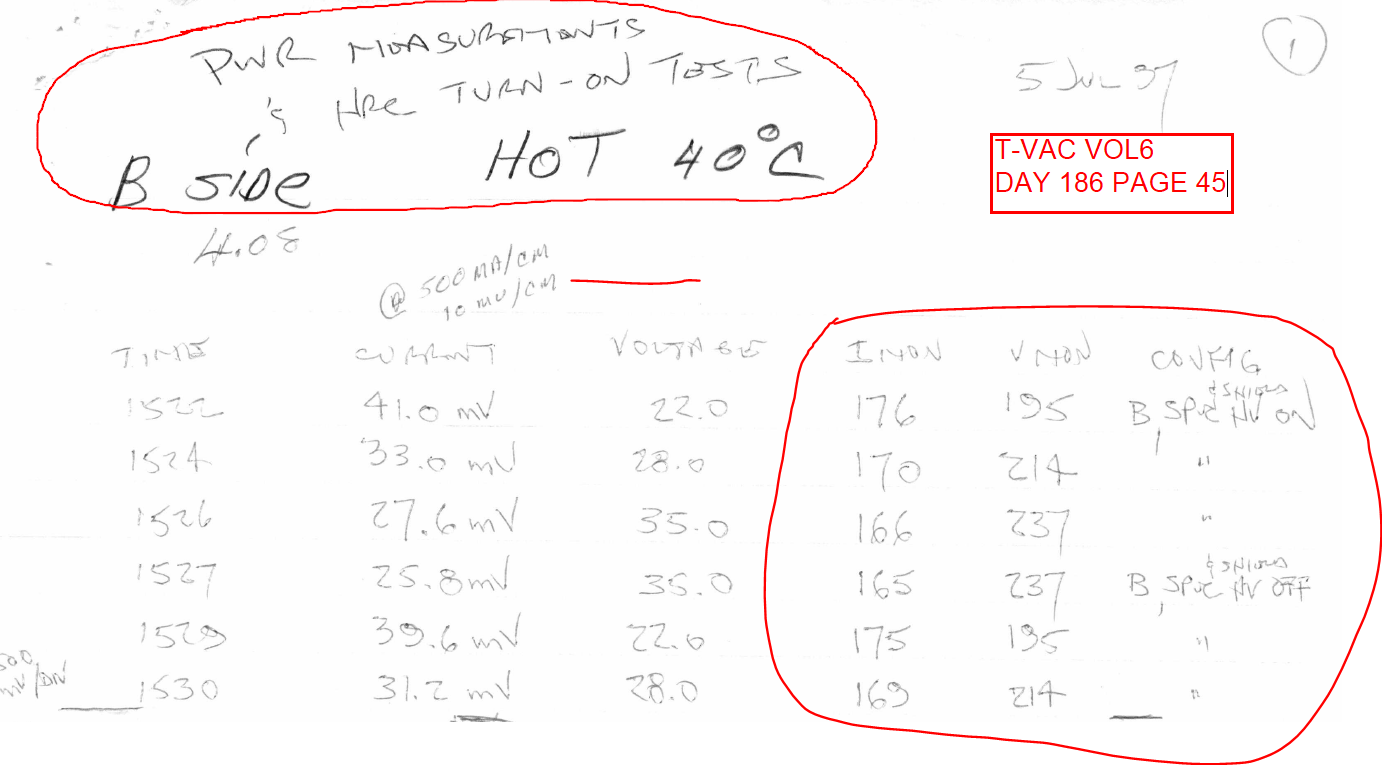 PWR MEASUREMENTS
& HRC TURN-ON TESTS
B SIDE HOT 40°C
4.08
1
5 JUL 97
T-VAC VOL6
DAY 186 PAGE 45
@ 500 MA/CM
10 MV/CM
TIME CURRENT VOLTAGE IMON VMON CONFIG
& SHIELD
1522 41.0 mV 22.0 176 195 B, SPEC HV ON
1524 33.0 mV 28.0 170 214 "
1526 27.6 mV 35.0 166 237 "
& SHIELD
1527 25.8 mV 35.0 165 237 B, SPEC HV OFF
1529 39.6 mV 22.0 175 195 "
500
mV/DIV
1530 31.2 mV 28.0 169 214 "